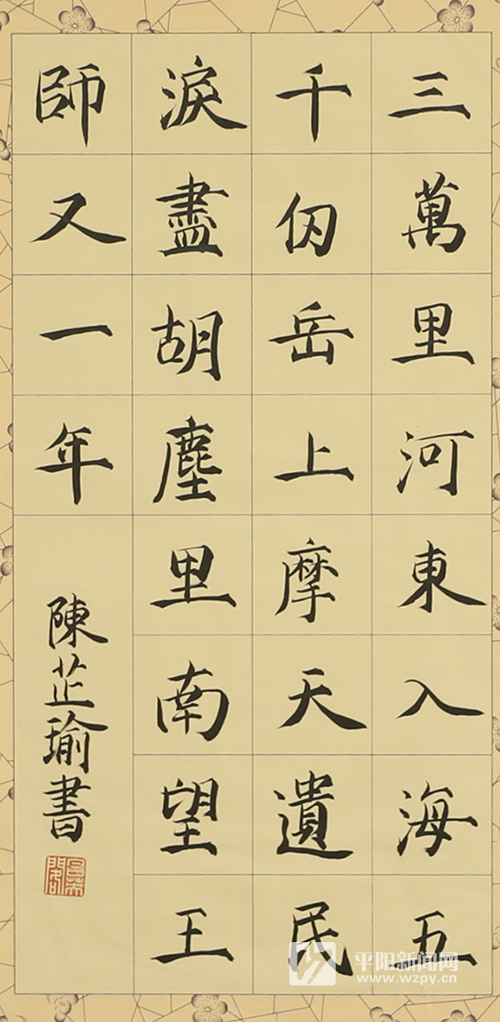 三萬里河東入海五
千仞岳上摩天遺民
淚盡胡塵里南望王
師又一年
陳芷瑜書
平阳新闻网
www.wzpy.cn